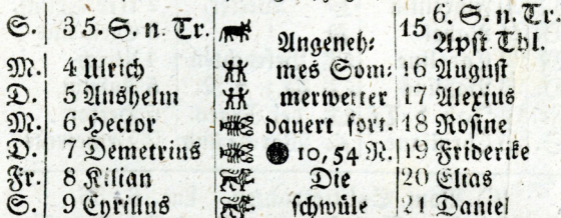 S. 3 5. S. n. Tr. 15 6. S. n. Tr.
Angeneh= Apst. Thl.
M. 4 Ulrich mes Som= 16 August
D. 5 Anshelm merwetter 17 Alexius
M. 6 Hector dauert fort. 18 Rosine
D. 7 Demetrius ● 10, 54 N. 19 Friderike
Fr. 8 Kilian Die 20 Elias
S. 9 Cyrillus schwüle 21 Daniel